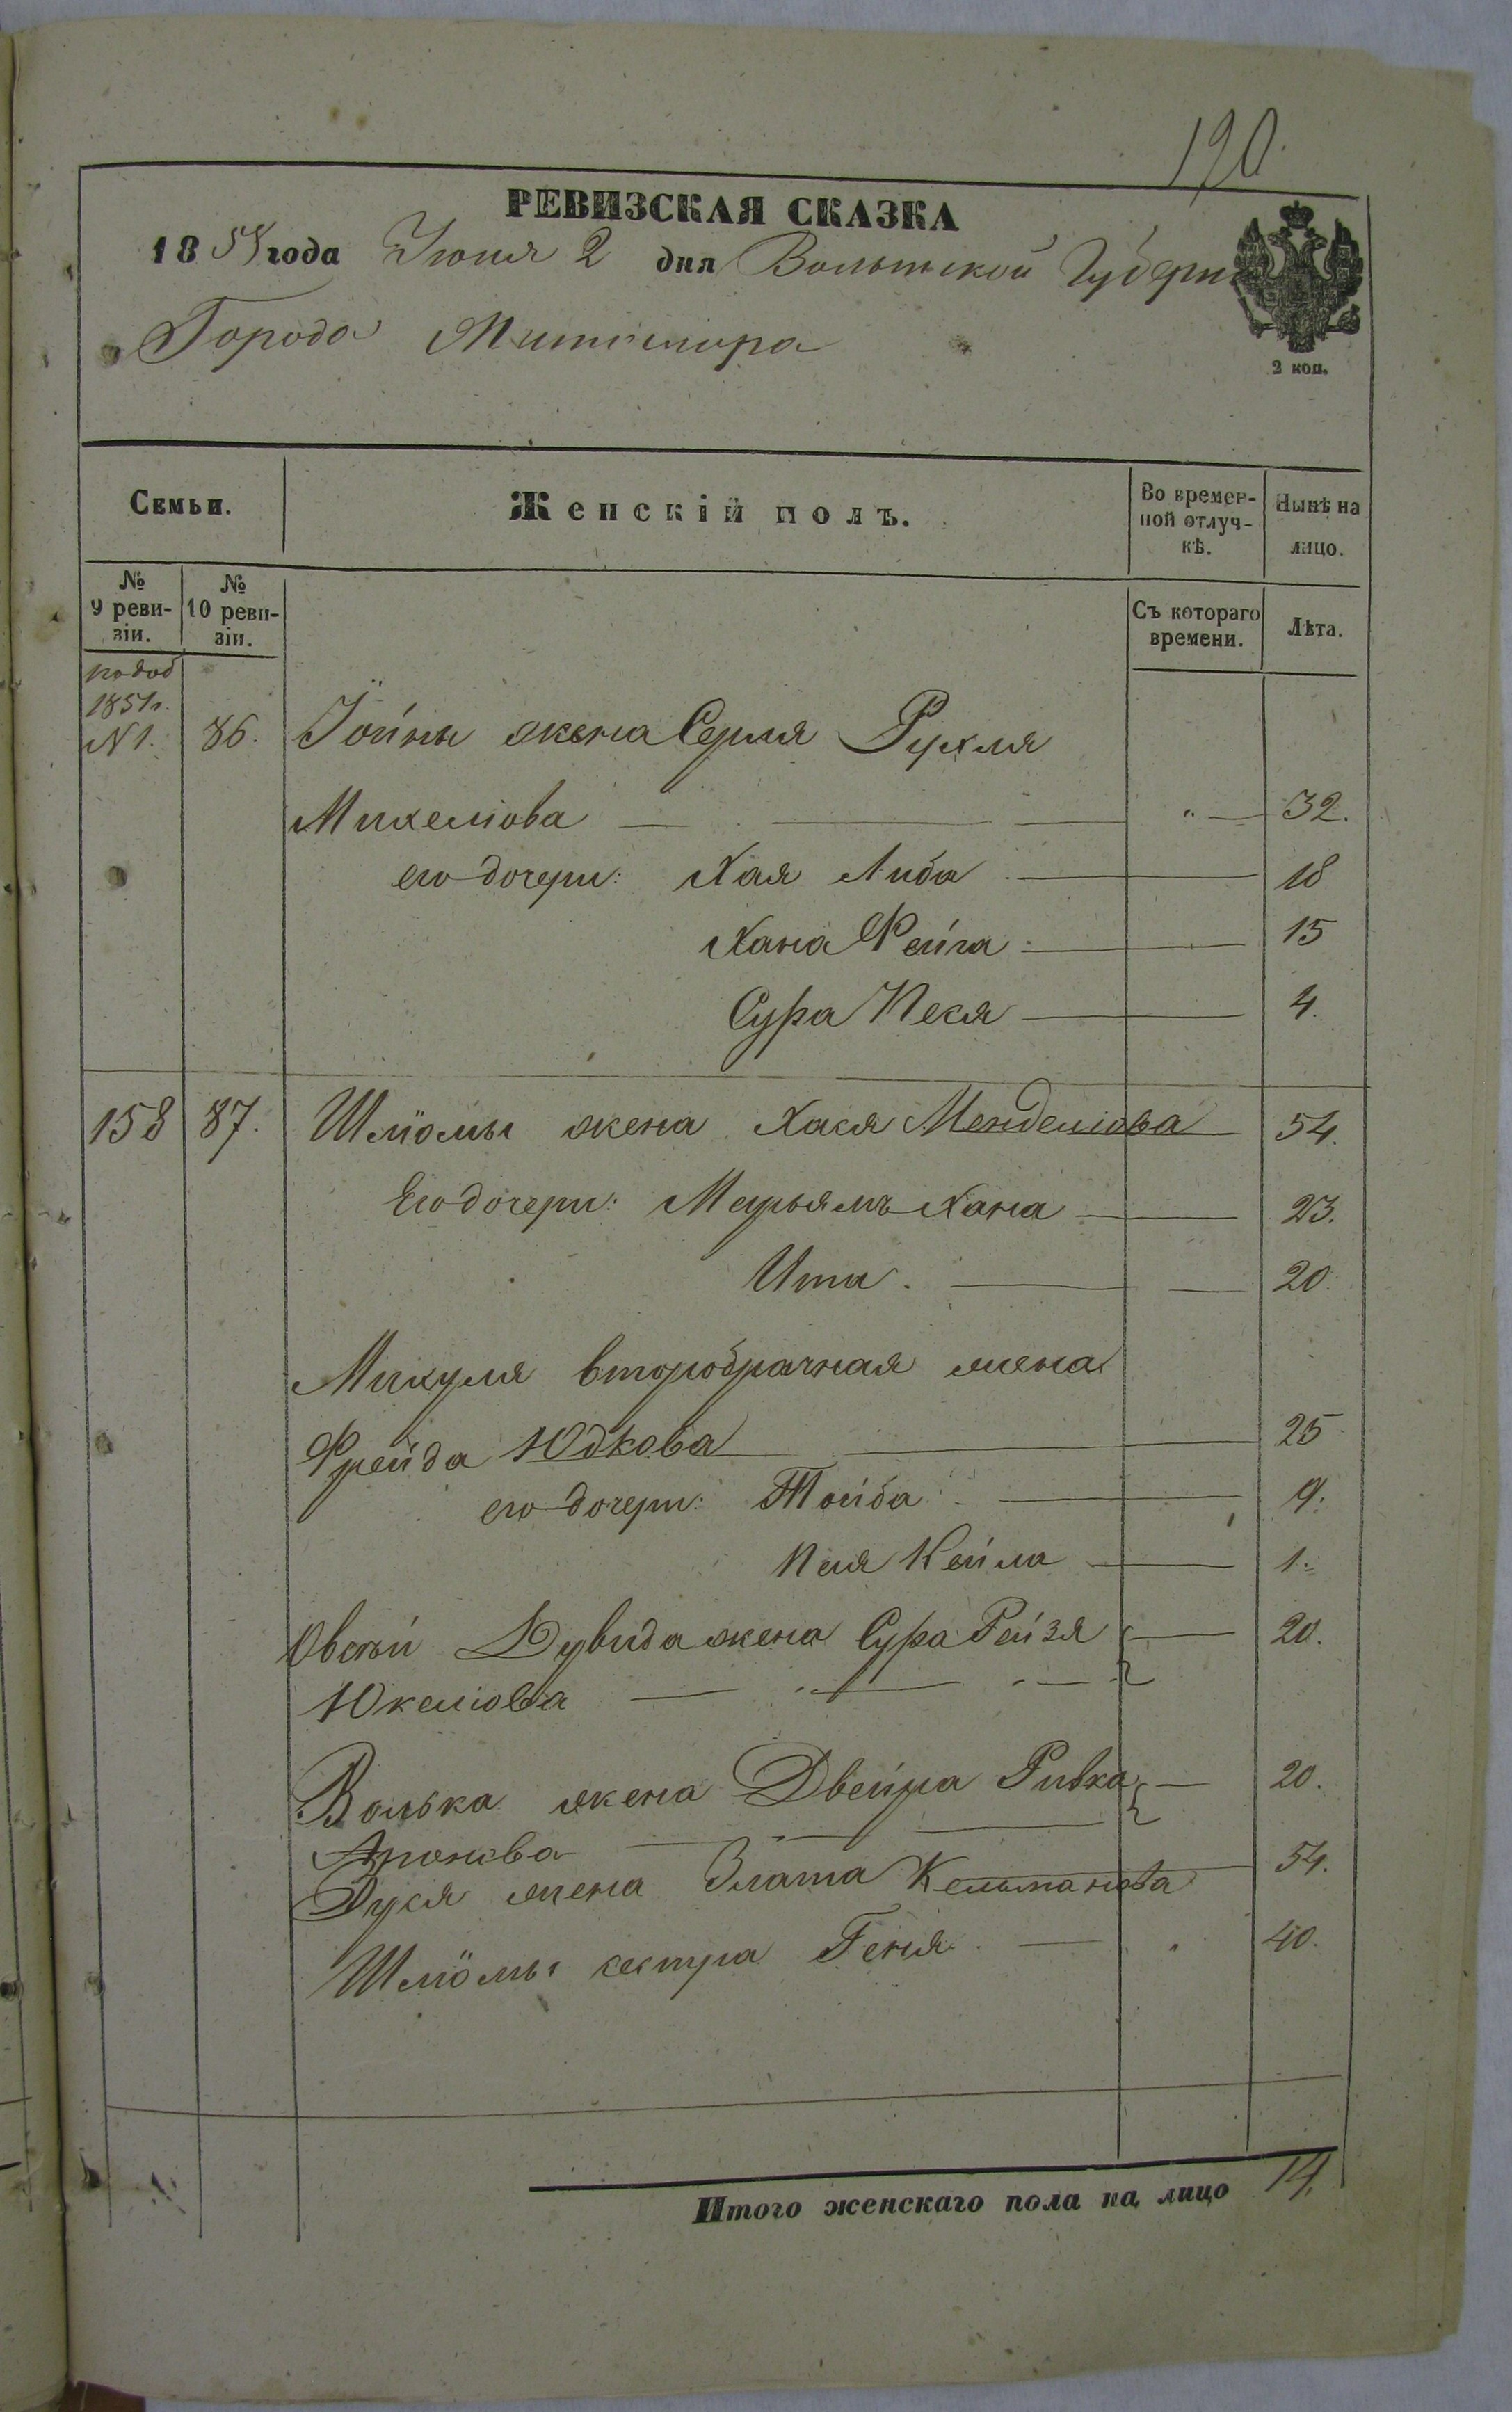 190.
РЕВИЗСКАЯ СКАЗКА
1858 года Июня 2 дня Волынской Губерн
Города Житомира
2 коп.
Семьи. Женскій полъ. Во времен-ной отлуч-кѣ. Нынѣ на лицо.
№ 9 реви-зіи. № 10 реви-зіи. Съ котораго времени. Лѣта.
по доб
1851г.
N 1. 86. Іойны жена Серля Рухля
Михелiова " 32.
его дочери: Хая Либа 18
Хана Фейга 15
Сура Песя 4.
158 87. Шліомы жена Хася Менделiова 54.
Его дочери: Марьямъ Хана 23.
Ита. 20.
Микуля второбрачная жена
Фрейда Юдкова 25
его дочери: Тойба 9.
Пея Нейла 1.
Овсѣй Дувида жена Сура Рейзя 20.
Юкелiова
Волька жена Двейра Ривка 20.
Аронова
Дуся жена Злата Кельманова 54.
Шліомы сестра Геня. 40.
Итого женскаго пола на лицо 14.